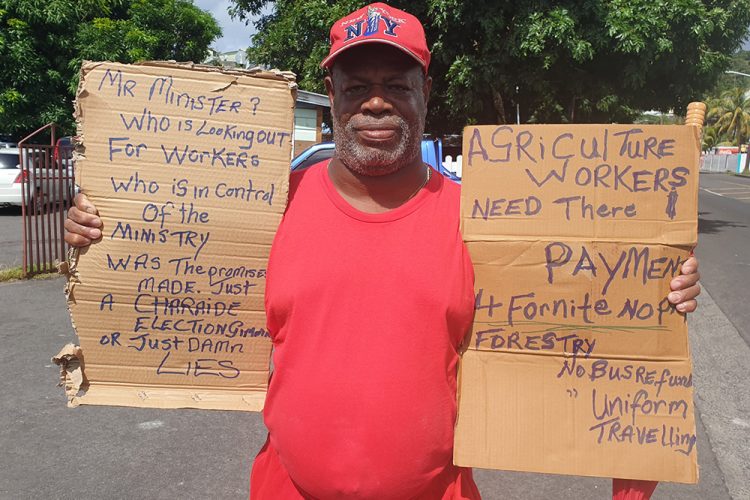 NEW YORK
NY
MR MINISTER?
WHO IS LOOKING OUT
FOR WORKERS
WHO IS IN CONTROL
OF THE
MINISTRY
WAS THE PROMISES
MADE. JUST
A CHARAIDE
ELECTION
OR JUST DAMN
LIES
AGRICULTURE
WORKERS
NEED THERE $
PAYMENT
4 FORNITE NO
FORESTRY
NO BUS REFUND
" UNIFORM
TRAVELLING